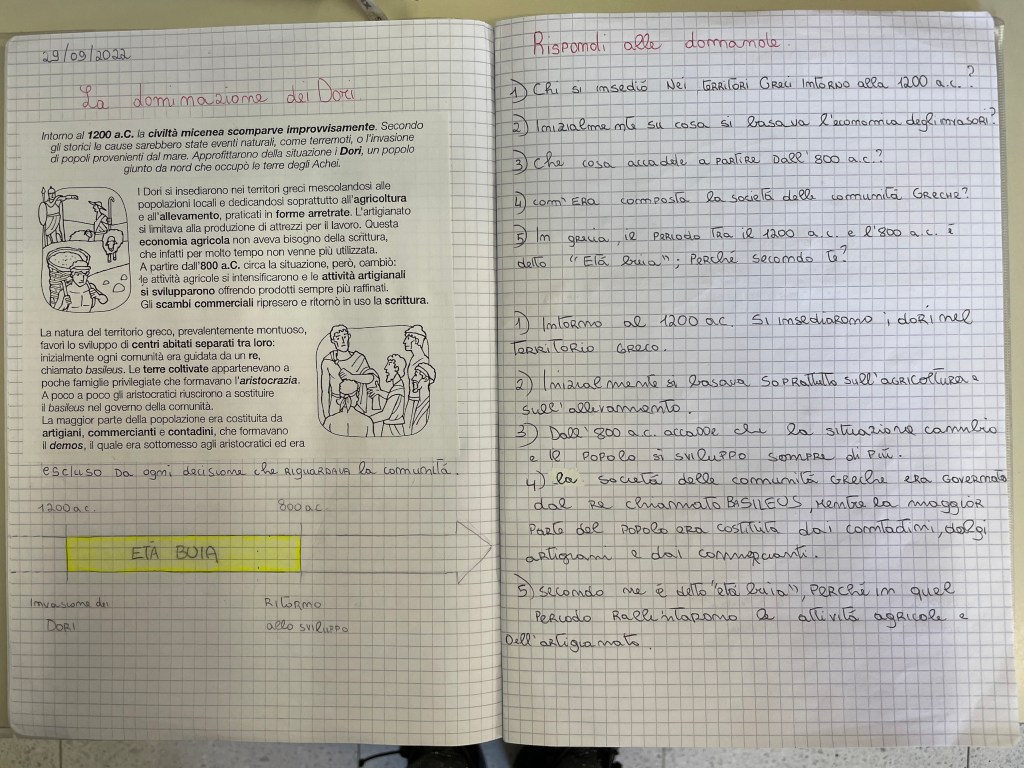 29/09/2022
La dominazione dei Dori
Intorno al 1200 a.C. la civiltà micenea scomparve improvvisamente. Secondo
gli storici le cause sarebbero state eventi naturali, come terremoti, o l'invasione
di popoli provenienti dal mare. Approfittarono della situazione i Dori, un popolo
giunto da nord che occupò le terre degli Achei.
I Dori si insediarono nei territori greci mescolandosi alle
popolazioni locali e dedicandosi soprattutto all'agricoltura
e all'allevamento, praticati in forme arretrate. L'artigianato
si limitava alla produzione di attrezzi per il lavoro. Questa
economia agricola non aveva bisogno della scrittura,
che infatti per molto tempo non venne più utilizzata.
A partire dall'800 a.C. circa la situazione, però, cambiò:
le attività agricole si intensificarono e le attività artigianali
si svilupparono offrendo prodotti sempre più raffinati.
Gli scambi commerciali ripresero e ritornò in uso la scrittura.
La natura del territorio greco, prevalentemente montuoso,
favorì lo sviluppo di centri abitati separati tra loro:
inizialmente ogni comunità era guidata da un re,
chiamato basileus. Le terre coltivate appartenevano a
poche famiglie privilegiate che formavano l'aristocrazia.
A poco a poco gli aristocratici riuscirono a sostituire
il basileus nel governo della comunità.
La maggior parte della popolazione era costituita da
artigiani, commercianti e contadini, che formavano
il demos, il quale era sottomesso agli aristocratici ed era
escluso da ogni decisione che riguardava la comunità.
1200 a.c. 800 a.c.
ETÀ BUIA
Invasione dei
DORI
RITORNO
allo sviluppo
Rispondi alle domande.
1) Chi si insediò nei territori Greci intorno alla 1200 a.c.?
2) Inizialmente su cosa si basava l'economia degli invasori?
3) Che cosa accadde a partire dall'800 a.c.?
4) com'era composta la società delle comunità Greche?
5) In grecia, il periodo tra il 1200 a.c. e l'800 a.c. è
detto "Età buia"; perché secondo te?
1) Intorno al 1200 a.c. si insediarono i dori nel
territorio Greco.
2) Inizialmente si basava soprattutto sull'agricoltura e
sull'allevamento.
3) Dall'800 a.c. accadde che la situazione cambiò
e il popolo si sviluppò sempre di più.
4) la società delle comunità Greche era governata
dal re chiamato BASILEUS, mentre la maggior
parte del popolo era costituita dai contadini, dagli
artigiani e dai commercianti.
5) secondo me è detto "età buia", perché in quel
periodo rallentarono le attività agricole e
dell'artigianato.